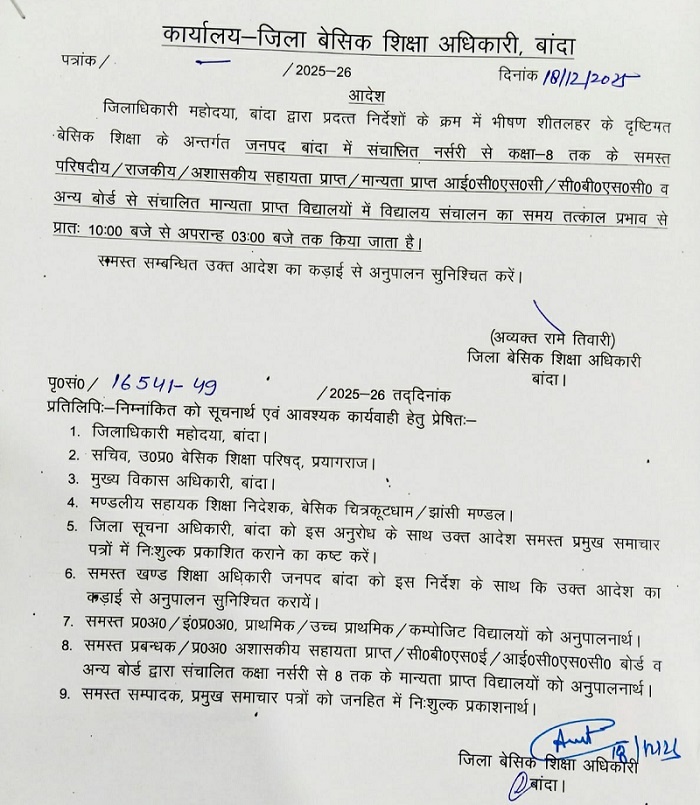 कार्यालय–जिला बेसिक शिक्षा अधिकारी, बांदा
पत्रांक / — / 2025–26 दिनांक 18/12/2025
आदेश
जिलाधिकारी महोदया, बांदा द्वारा प्रदत्त निर्देशों के क्रम में भीषण शीतलहर के दृष्टिगत
बेसिक शिक्षा के अन्तर्गत जनपद बांदा में संचालित नर्सरी से कक्षा–8 तक के समस्त
परिषदीय/राजकीय/अशासकीय सहायता प्राप्त/मान्यता प्राप्त आई0सी0एस0सी/सी0बी0एस0सी0 व
अन्य बोर्ड से संचालित मान्यता प्राप्त विद्यालयों में विद्यालय संचालन का समय तत्काल प्रभाव से
प्रातः 10:00 बजे से अपरान्ह 03:00 बजे तक किया जाता है।
समस्त सम्बन्धित उक्त आदेश का कड़ाई से अनुपालन सुनिश्चित करें।
(अव्यक्त राम तिवारी)
जिला बेसिक शिक्षा अधिकारी
बांदा।
पृ0सं0/ 16541–49 /2025–26 तद्दिनांक
प्रतिलिपिः–निम्नांकित को सूचनार्थ एवं आवश्यक कार्यवाही हेतु प्रेषितः–
1. जिलाधिकारी महोदया, बांदा।
2. सचिव, उ0प्र0 बेसिक शिक्षा परिषद्, प्रयागराज।
3. मुख्य विकास अधिकारी, बांदा।
4. मण्डलीय सहायक शिक्षा निदेशक, बेसिक चित्रकूटधाम/झांसी मण्डल।
5. जिला सूचना अधिकारी, बांदा को इस अनुरोध के साथ उक्त आदेश समस्त प्रमुख समाचार
पत्रों में निःशुल्क प्रकाशित कराने का कष्ट करें।
6. समस्त खण्ड शिक्षा अधिकारी जनपद बांदा को इस निर्देश के साथ कि उक्त आदेश का
कड़ाई से अनुपालन सुनिश्चित करायें।
7. समस्त प्र0अ0/इं0प्र0अ0, प्राथमिक/उच्च प्राथमिक/कम्पोजिट विद्यालयों को अनुपालनार्थ।
8. समस्त प्रबन्धक/प्र0अ0 अशासकीय सहायता प्राप्त/सी0बी0एस0ई/आई0सी0एस0सी0 बोर्ड व
अन्य बोर्ड द्वारा संचालित कक्षा नर्सरी से 8 तक के मान्यता प्राप्त विद्यालयों को अनुपालनार्थ।
9. समस्त सम्पादक, प्रमुख समाचार पत्रों को जनहित में निःशुल्क प्रकाशनार्थ।
18/12/25
जिला बेसिक शिक्षा अधिकारी
बांदा।